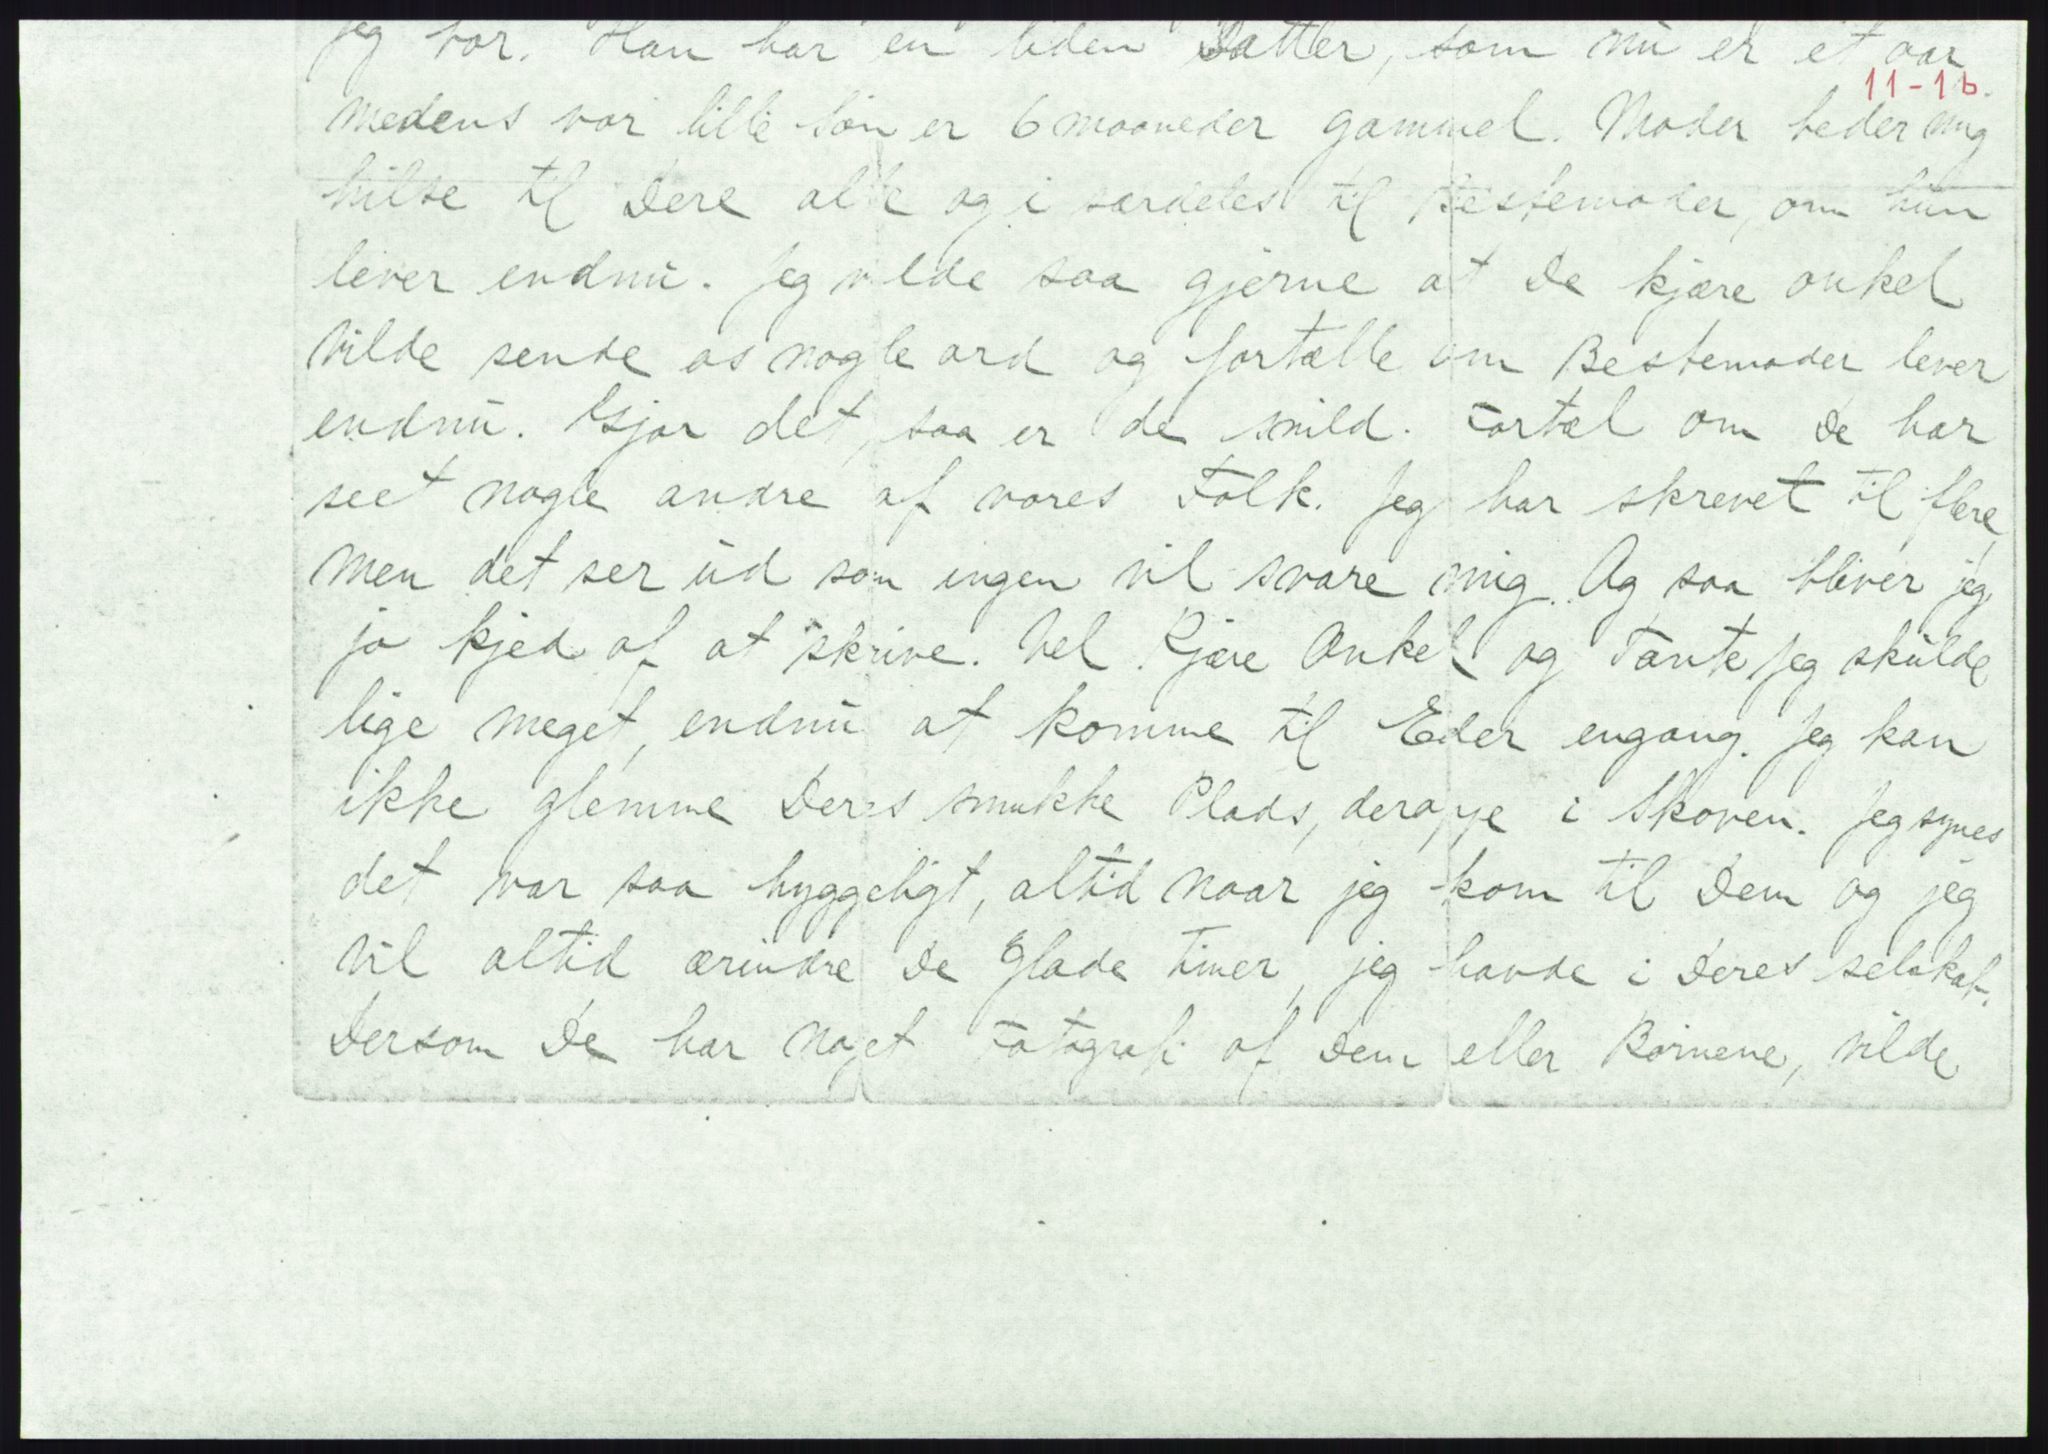 jeg var. Han har en liden Datter, som nu er et aar
11-1b.
medens vor lille Søn er 6 maaneder gammel. Moder beder mig
hilse til Dere alle og i særdeles til Bestemoder, om hun
lever endnu. Jeg vilde saa gjerne at De kjære onkel
vilde sende os nogle ord og fortælle om Bestemoder lever
endnu. Gjør det, saa er de snild. Fortæl om De har
seet nogle andre af vores Folk. Jeg har skrevet til flere,
men det ser ud som ingen vil svare mig. Og saa bliver jeg
jo kjed af at skrive. Vel Kjære Onkel og Tante jeg skulde
lige meget, endnu at komme til Eder engang. Jeg kan
ikke glemme Deres smukke Plads, deroppe i Skoven. Jeg synes
det var saa hyggeligt, altid naar jeg kom til Dem og jeg
vil altid ærindre De glade Timer, jeg havde i Deres selskab.
Dersom De har noget Fotografi af Dem eller Børnene, vilde